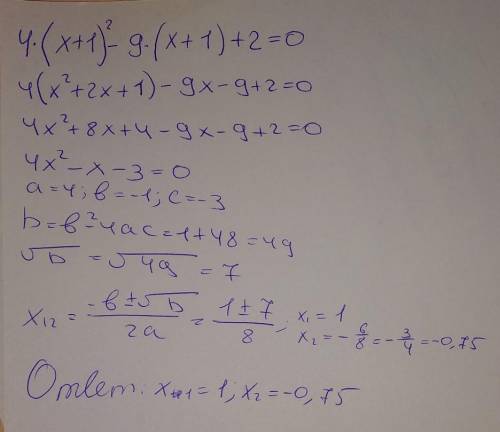 4·(x+1)²-9·(x+1)+2=0
4(x²+2x+1)-9x-9+2=0
4x²+8x+4-9x-9+2=0
4x²-x-3=0
a=4; b=-1; c=-3
D=b²-4ac=1+48=49
√D=√49=7
x₁₂=(-b±√D)/2a=(1±7)/8; x₁=1
x₂=-6/8=-3/4=-0,75
Ответ: x₁=1; x₂=-0,75